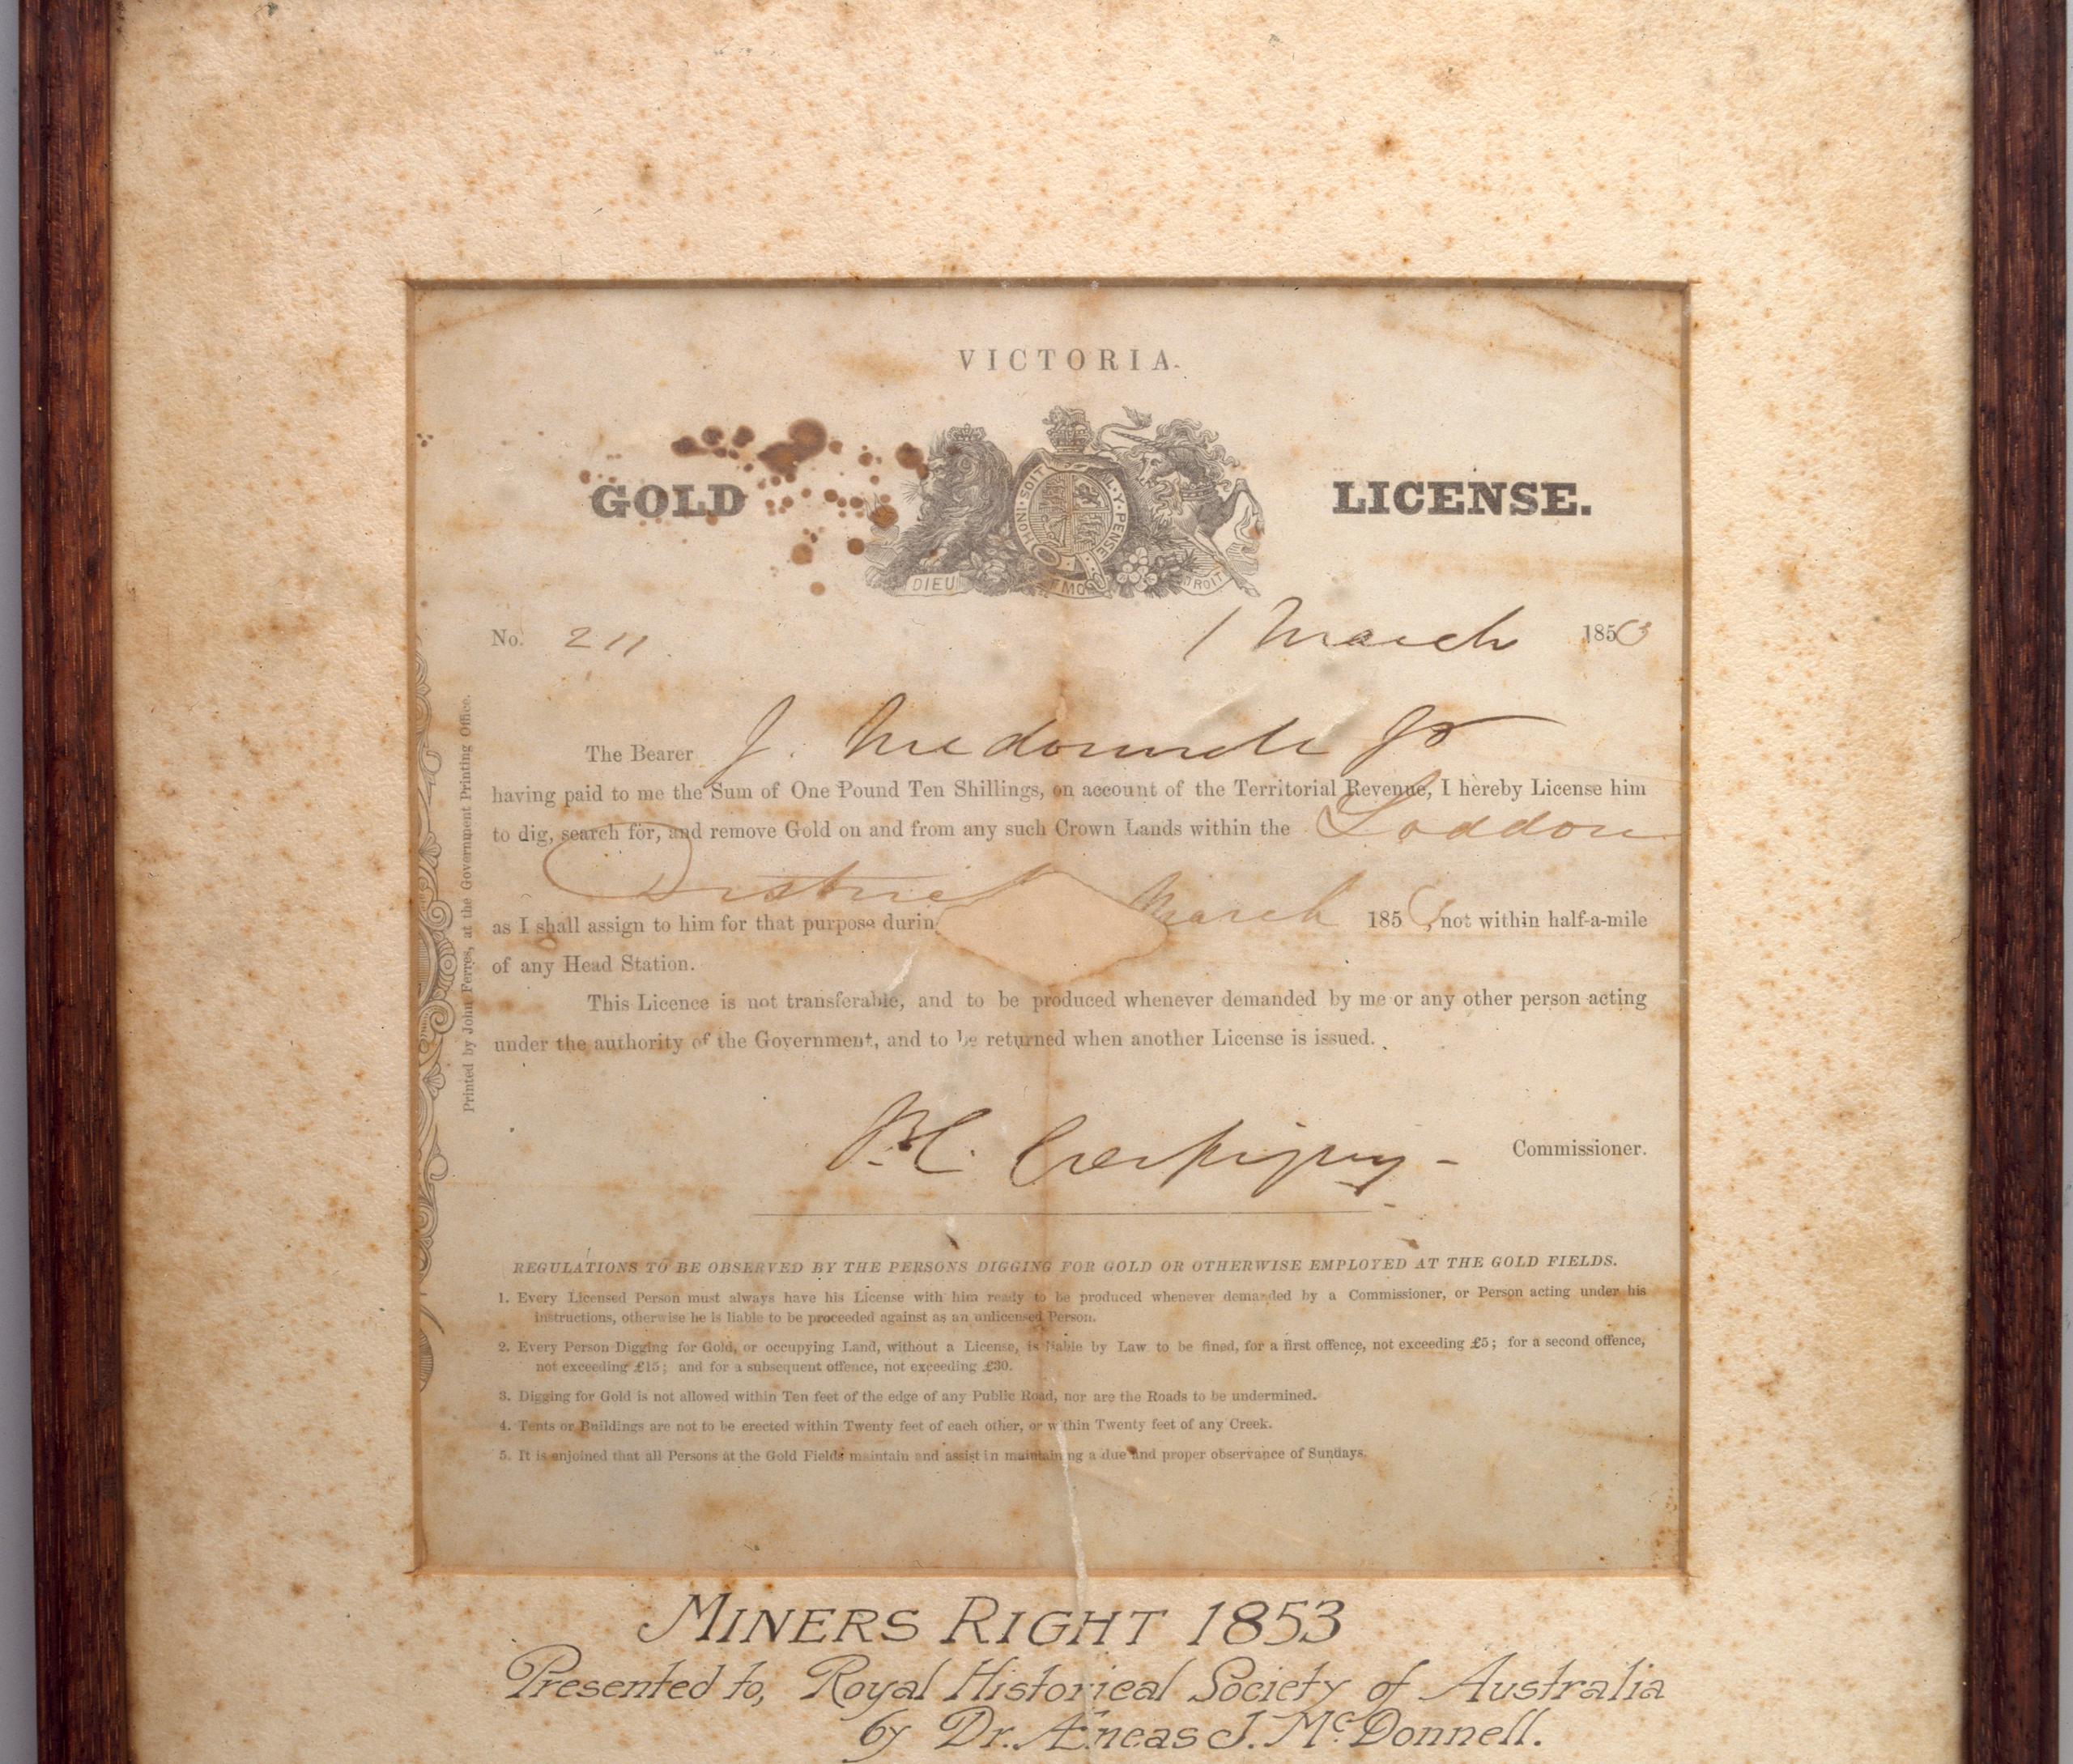 VICTORIA.
GOLD LICENSE.
HONI · SOIT · Y · PENSE
DIEU ET MON DROIT
No. 211. 1 March 1853
The Bearer J. McDonnell Jr
having paid to me the Sum of One Pound Ten Shillings, on account of the Territorial Revenue, I hereby License him
to dig, search for, and remove Gold on and from any such Crown Lands within the Loddon
District
as I shall assign to him for that purpose durin March 185 , not within half-a-mile
of any Head Station.
This Licence is not transferable, and to be produced whenever demanded by me or any other person acting
under the authority of the Government, and to be returned when another License is issued.
Crespigny Commissioner.
REGULATIONS TO BE OBSERVED BY THE PERSONS DIGGING FOR GOLD OR OTHERWISE EMPLOYED AT THE GOLD FIELDS.
1. Every Licensed Person must always have his License with him ready to be produced whenever demanded by a Commissioner, or Person acting under his
instructions, otherwise he is liable to be proceeded against as an unlicensed Person.
2. Every Person Digging for Gold, or occupying Land, without a License, is liable by Law to be fined, for a first offence, not exceeding £5; for a second offence,
not exceeding £15; and for a subsequent offence, not exceeding £30.
3. Digging for Gold is not allowed within Ten feet of the edge of any Public Road, nor are the Roads to be undermined.
4. Tents or Buildings are not to be erected within Twenty feet of each other, or within Twenty feet of any Creek.
5. It is enjoined that all Persons at the Gold Fields maintain and assist in maintaining a due and proper observance of Sundays.
Printed by John Ferres, at the Government Printing Office.
MINERS RIGHT 1853
Presented to, Royal Historical Society of Australia
by Dr. Æneas J. McDonnell.